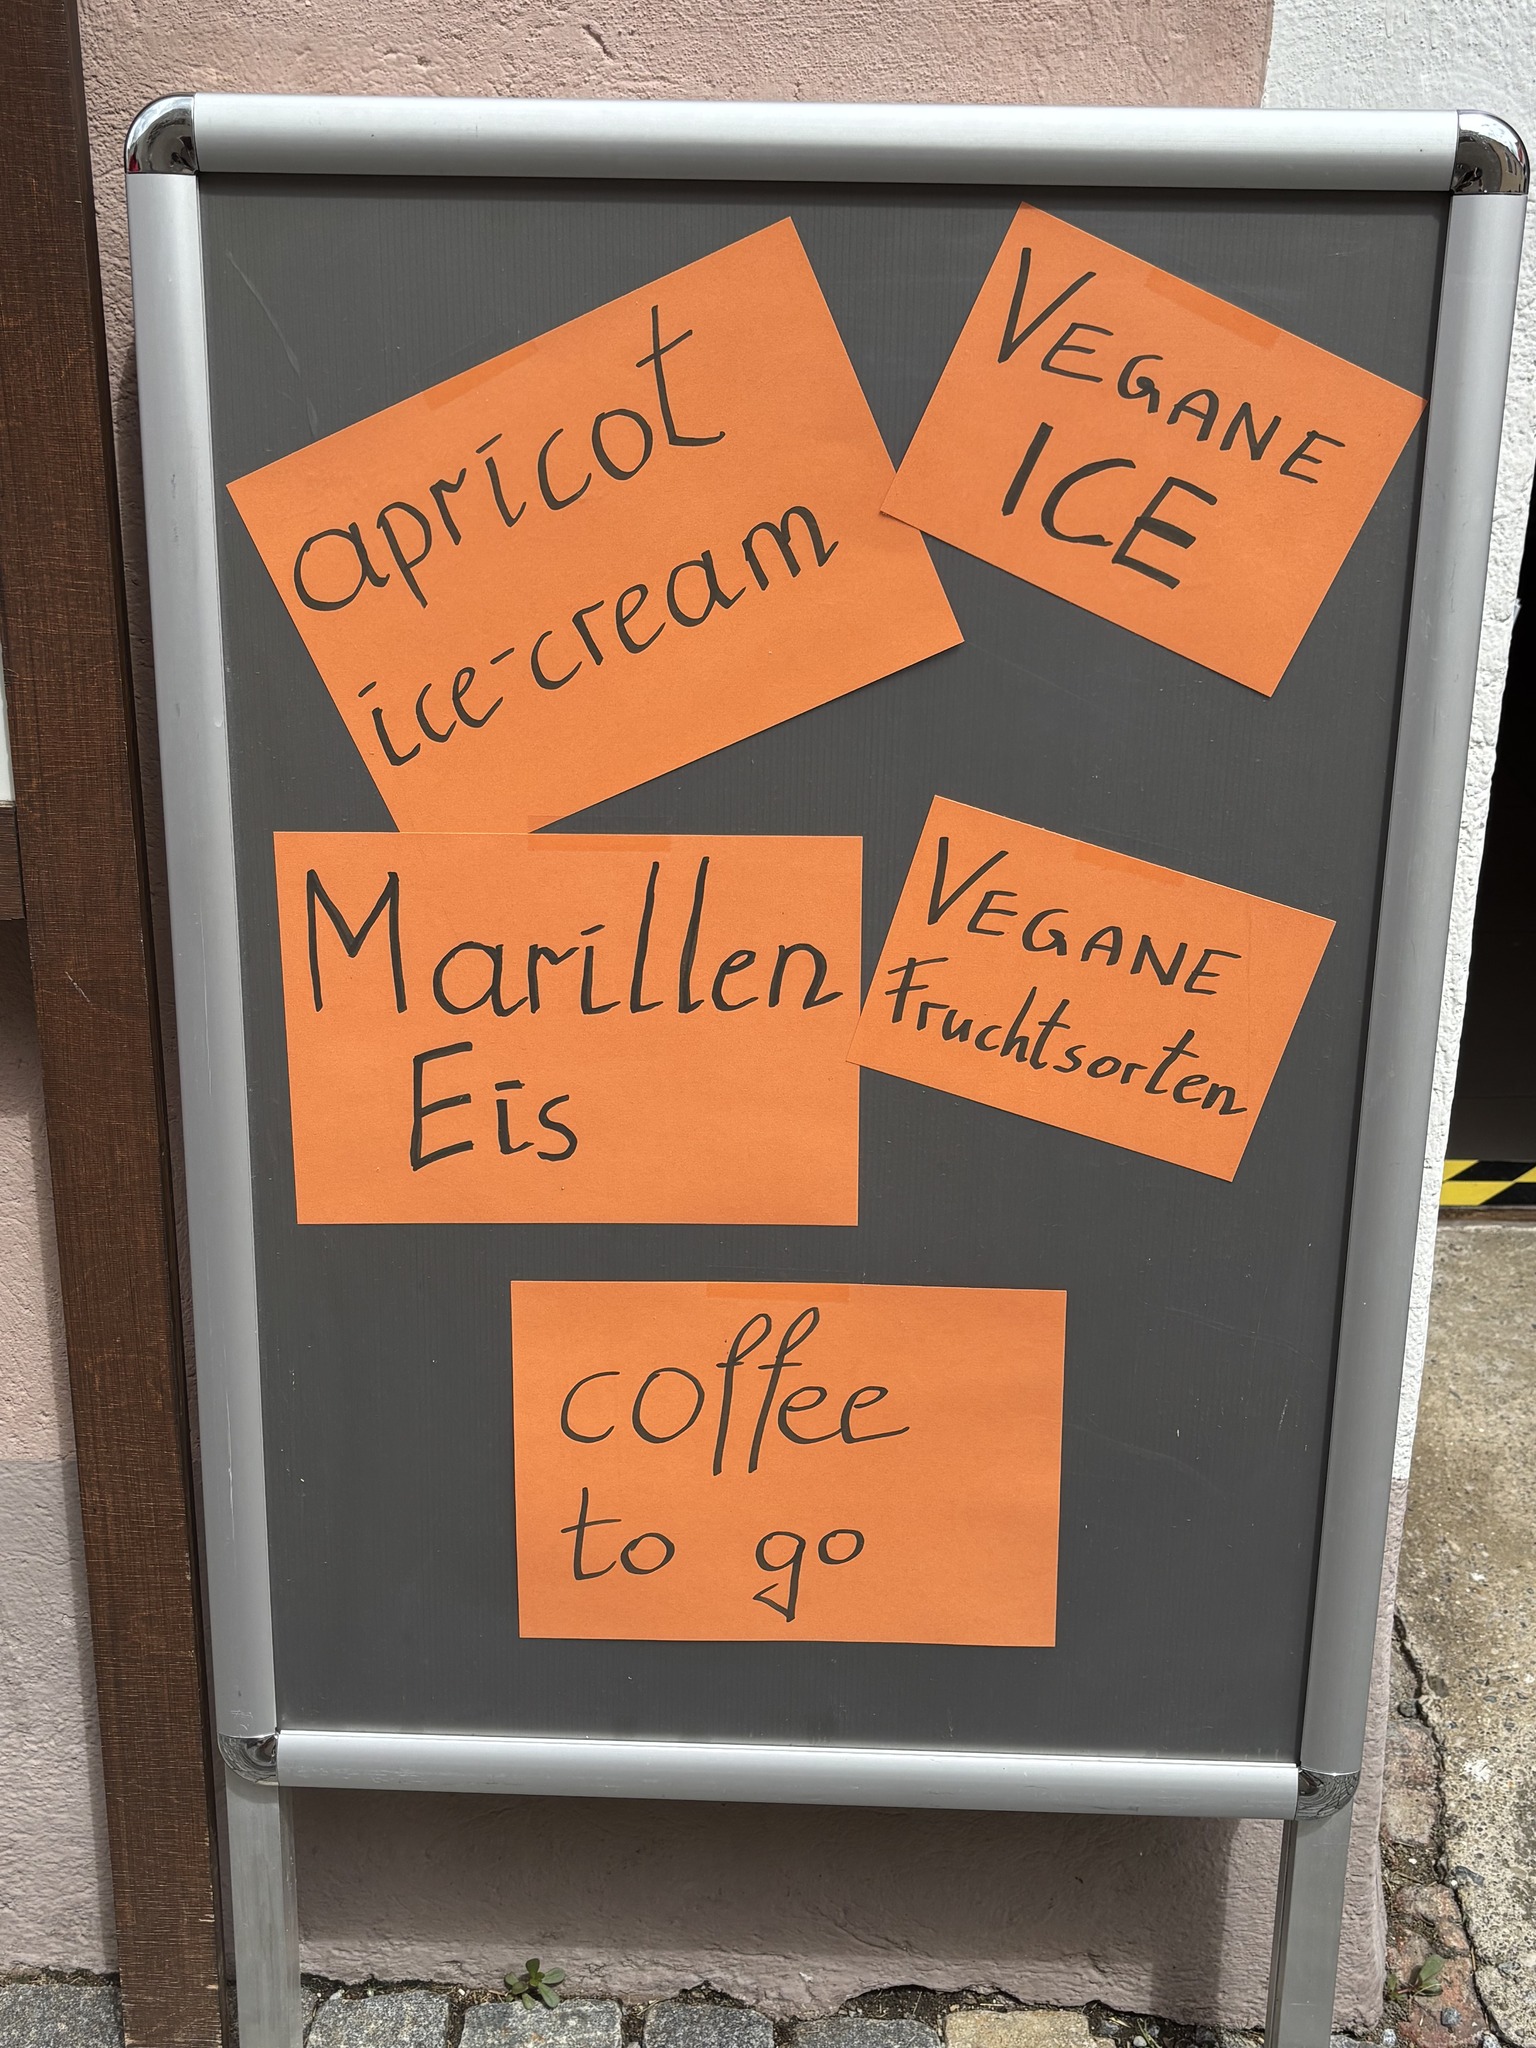 apricot
ice-cream
VEGANE
ICE
Marillen
Eis
VEGANE
Fruchtsorten
coffee
to go